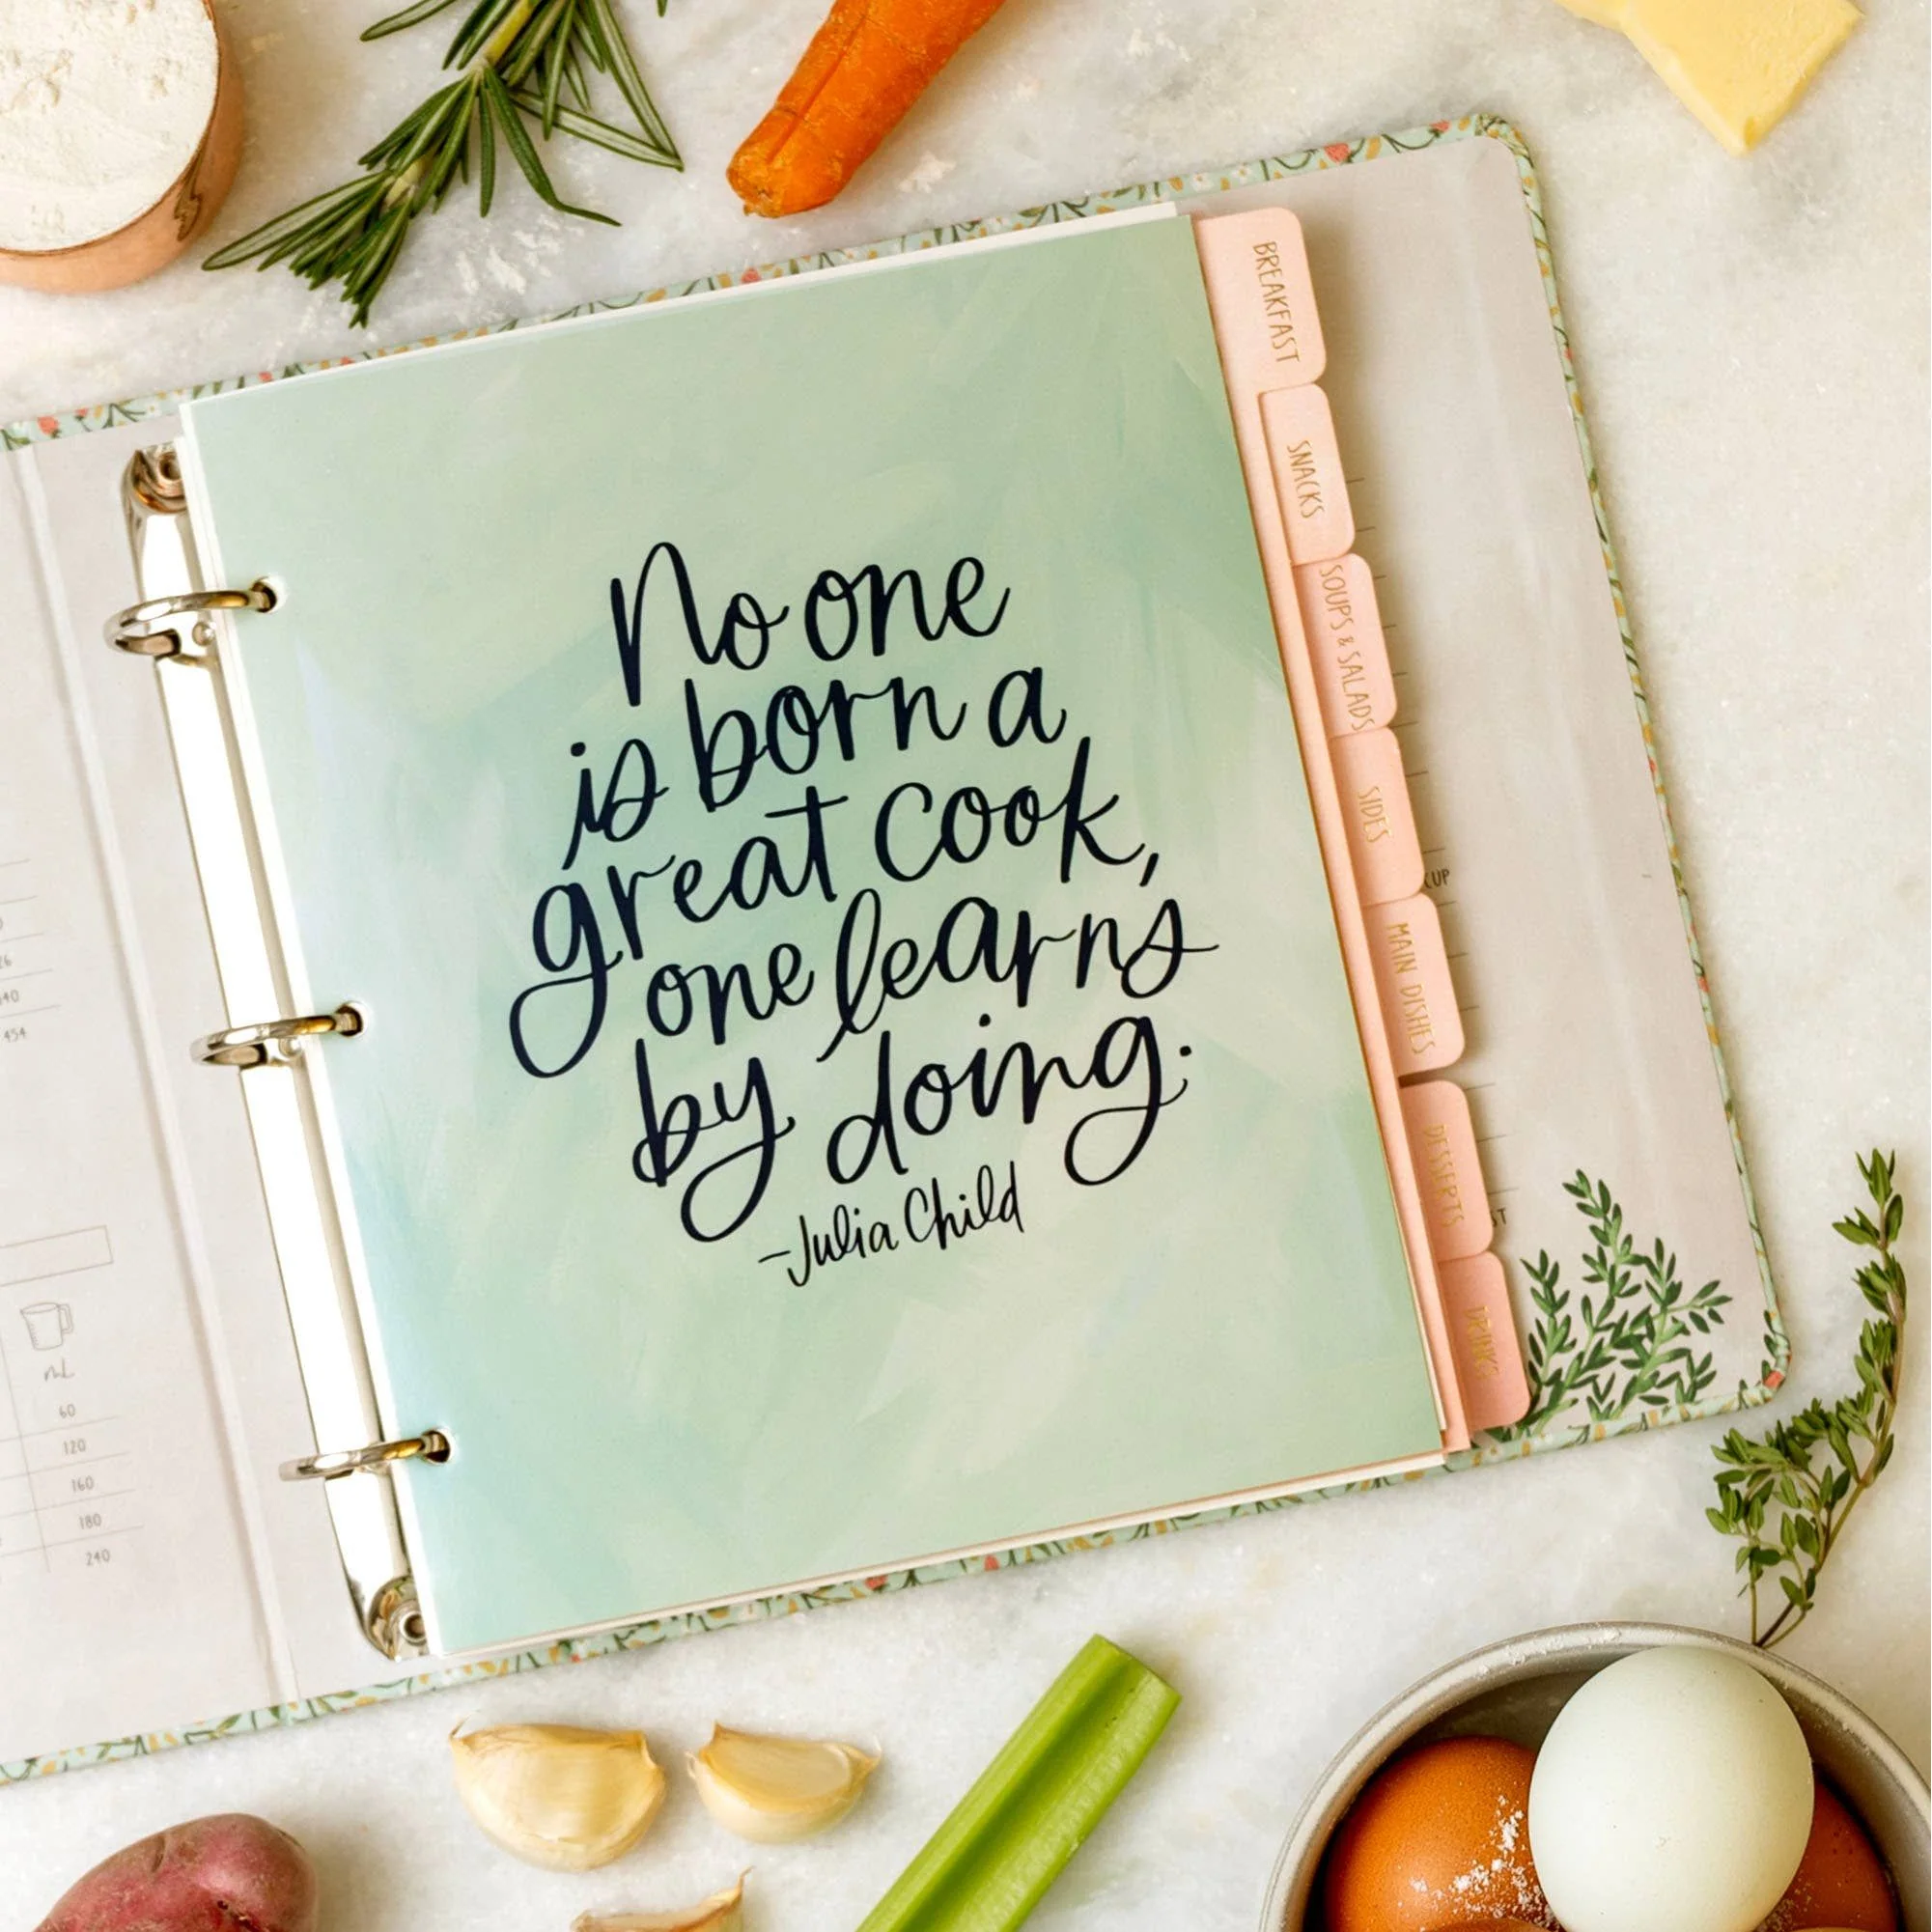 No one
is born a
great cook,
one learns
by doing.
-Julia Child
BREAKFAST
SNACKS
SOUPS & SALADS
SIDES
MAIN DISHES
DESSERTS
CUP
454
mL
60
120
160
180
240